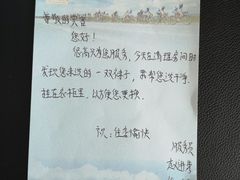 尊敬的贵宾
您好!
您高兴为您服务,今天在清理房间时
发现您未洗的一双袜子,我帮您洗干净
挂在衣柜里,以方便您更换。
祝:住店愉快
服务员